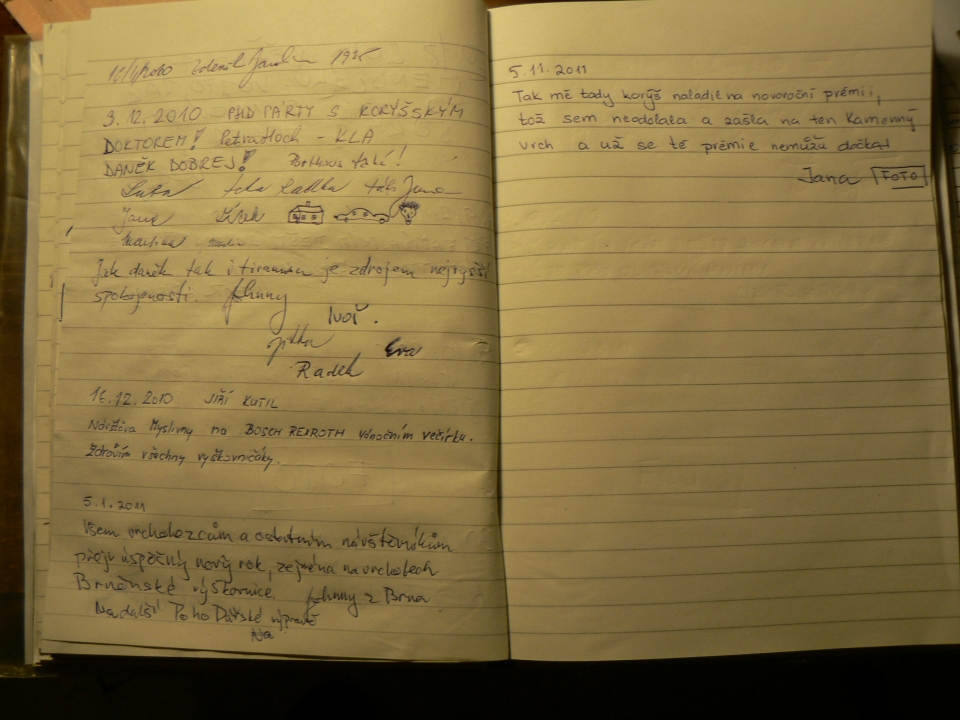 Zdeněk 1935
3.12.2010 PHD PÁRTY S KORÝŠSKÝM
DOKTOREM! Petra Hoch - KLA
DANĚK DOBREJ!
Radka
Jana
Martina
Jak daněk tak i tiramisu je zdrojem nejvyšší
spokojenosti. Johnny
Ivoš.
Jitka Eva
Radek
16.12.2010 JIŘÍ KUTIL
Návštěva Myslivny na BOSCH REXROTH vánočním večírku.
Zdravím všechny vyškovničáky.
5.1.2011
Všem vrcholezcům a ostatním návštěvníkům
přeji úspěšný nový rok, zejména na vrcholech
Brněnské výškovnice. Johnny z Brna
Na další PohoDářské výpravě
Na
5.11.2011
Tak mě tady korýš naladil na novoroční prémii,
tož sem neodolala a zašla na ten Kamenný
vrch a už se té prémie nemůžu dočkat
Jana FOTO